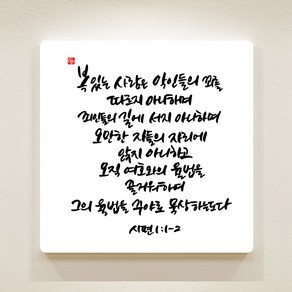 복있는 사람은 악인들의 꾀를
따르지 아니하며
죄인들의 길에 서지 아니하며
오만한 자들의 자리에
앉지 아니하고
오직 여호와의 율법을
즐거워하여
그의 율법을 주야로 묵상하는도다
시편 1:1-2